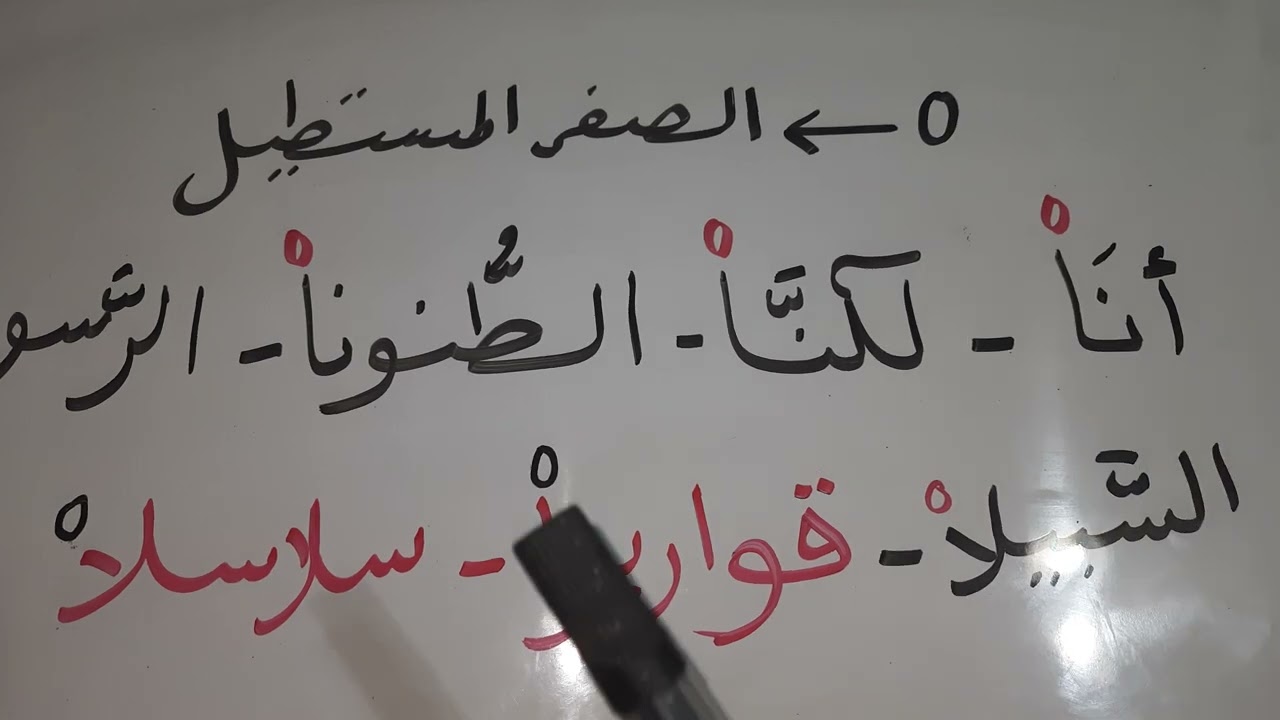 0 ← الصفر المستطيل
أنَا۠ - لكنَّا۠ - الطُّنونا۠ - الرَّسو
السَّبيلا۠ - قواريرا۠ - سلاسلا۠